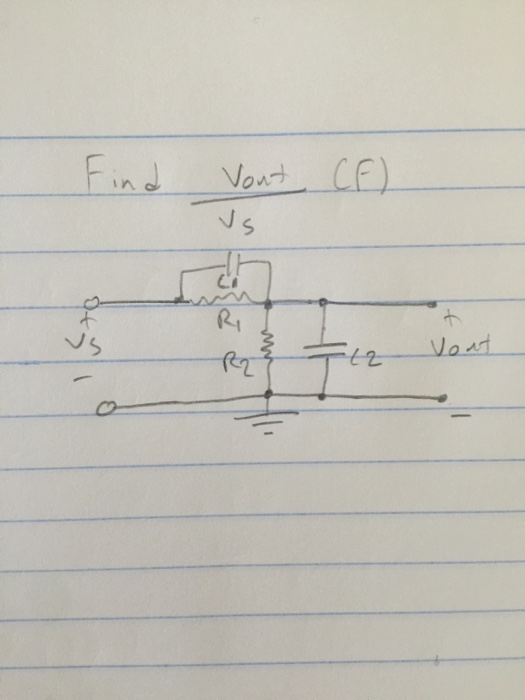 Find Vout (F)
Vs
C1
+ R1 +
Vs R2 C2 Vout
- -